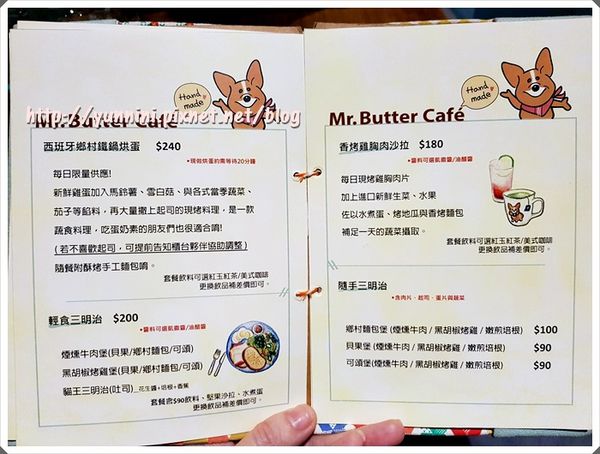 Hand made
http://yunmini.pixnet.net/blog
Mr. Butter Café
西班牙鄉村鐵鍋烘蛋 $240
*現做烘蛋約需等待20分鐘
每日限量供應!
新鮮雞蛋加入馬鈴薯、雪白菇、與各式當季蔬菜、
茄子等餡料，再大量撒上起司的現烤料理，是一款
蔬食料理，吃蛋奶素的朋友們也很適合唷!
( 若不喜歡起司，可提前告知櫃台夥伴協助調整 )
隨餐附酥烤手工麵包唷。
套餐飲料可選紅玉紅茶/美式咖啡
更換飲品補差價即可。
輕食三明治 $200
*醬料可選凱撒醬/油醋醬
煙燻牛肉堡 (貝果/鄉村麵包/可頌)
黑胡椒烤雞堡(貝果/鄉村麵包/可頌)
貓王三明治(吐司)_花生醬+培根+香蕉
套餐含$90飲料、堅果沙拉、水煮蛋
更換飲品補差價即可。
Hand made
Mr. Butter Café
香烤雞胸肉沙拉 $180
*醬料可選凱撒醬/油醋醬
每日現烤雞胸肉片
加上進口新鮮生菜、水果
佐以水煮蛋、烤地瓜與香烤麵包
補足一天的蔬菜攝取。
套餐飲料可選紅玉紅茶/美式咖啡
更換飲品補差價即可。
隨手三明治
*含肉片、起司、蛋片與蔬菜
鄉村麵包堡 (煙燻牛肉 / 黑胡椒烤雞 / 嫩煎培根) $100
貝果堡 (煙燻牛肉 / 黑胡椒烤雞 / 嫩煎培根) $90
可頌堡 (煙燻牛肉 / 黑胡椒烤雞 / 嫩煎培根) $90